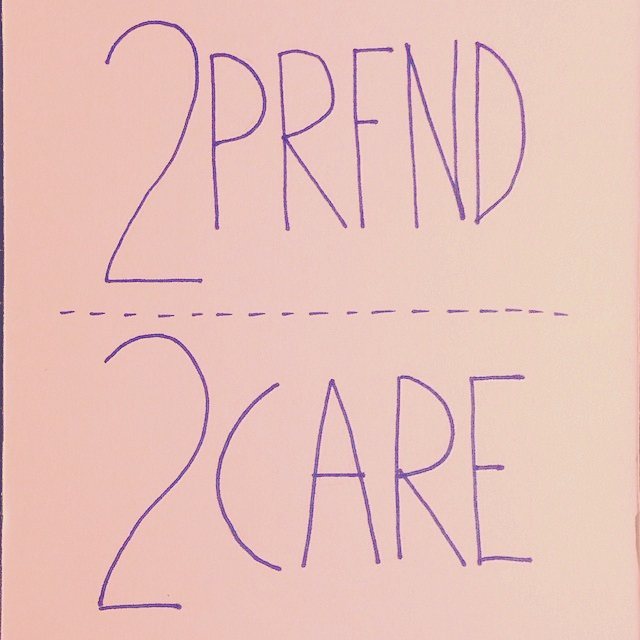 2PRFND
2CARE